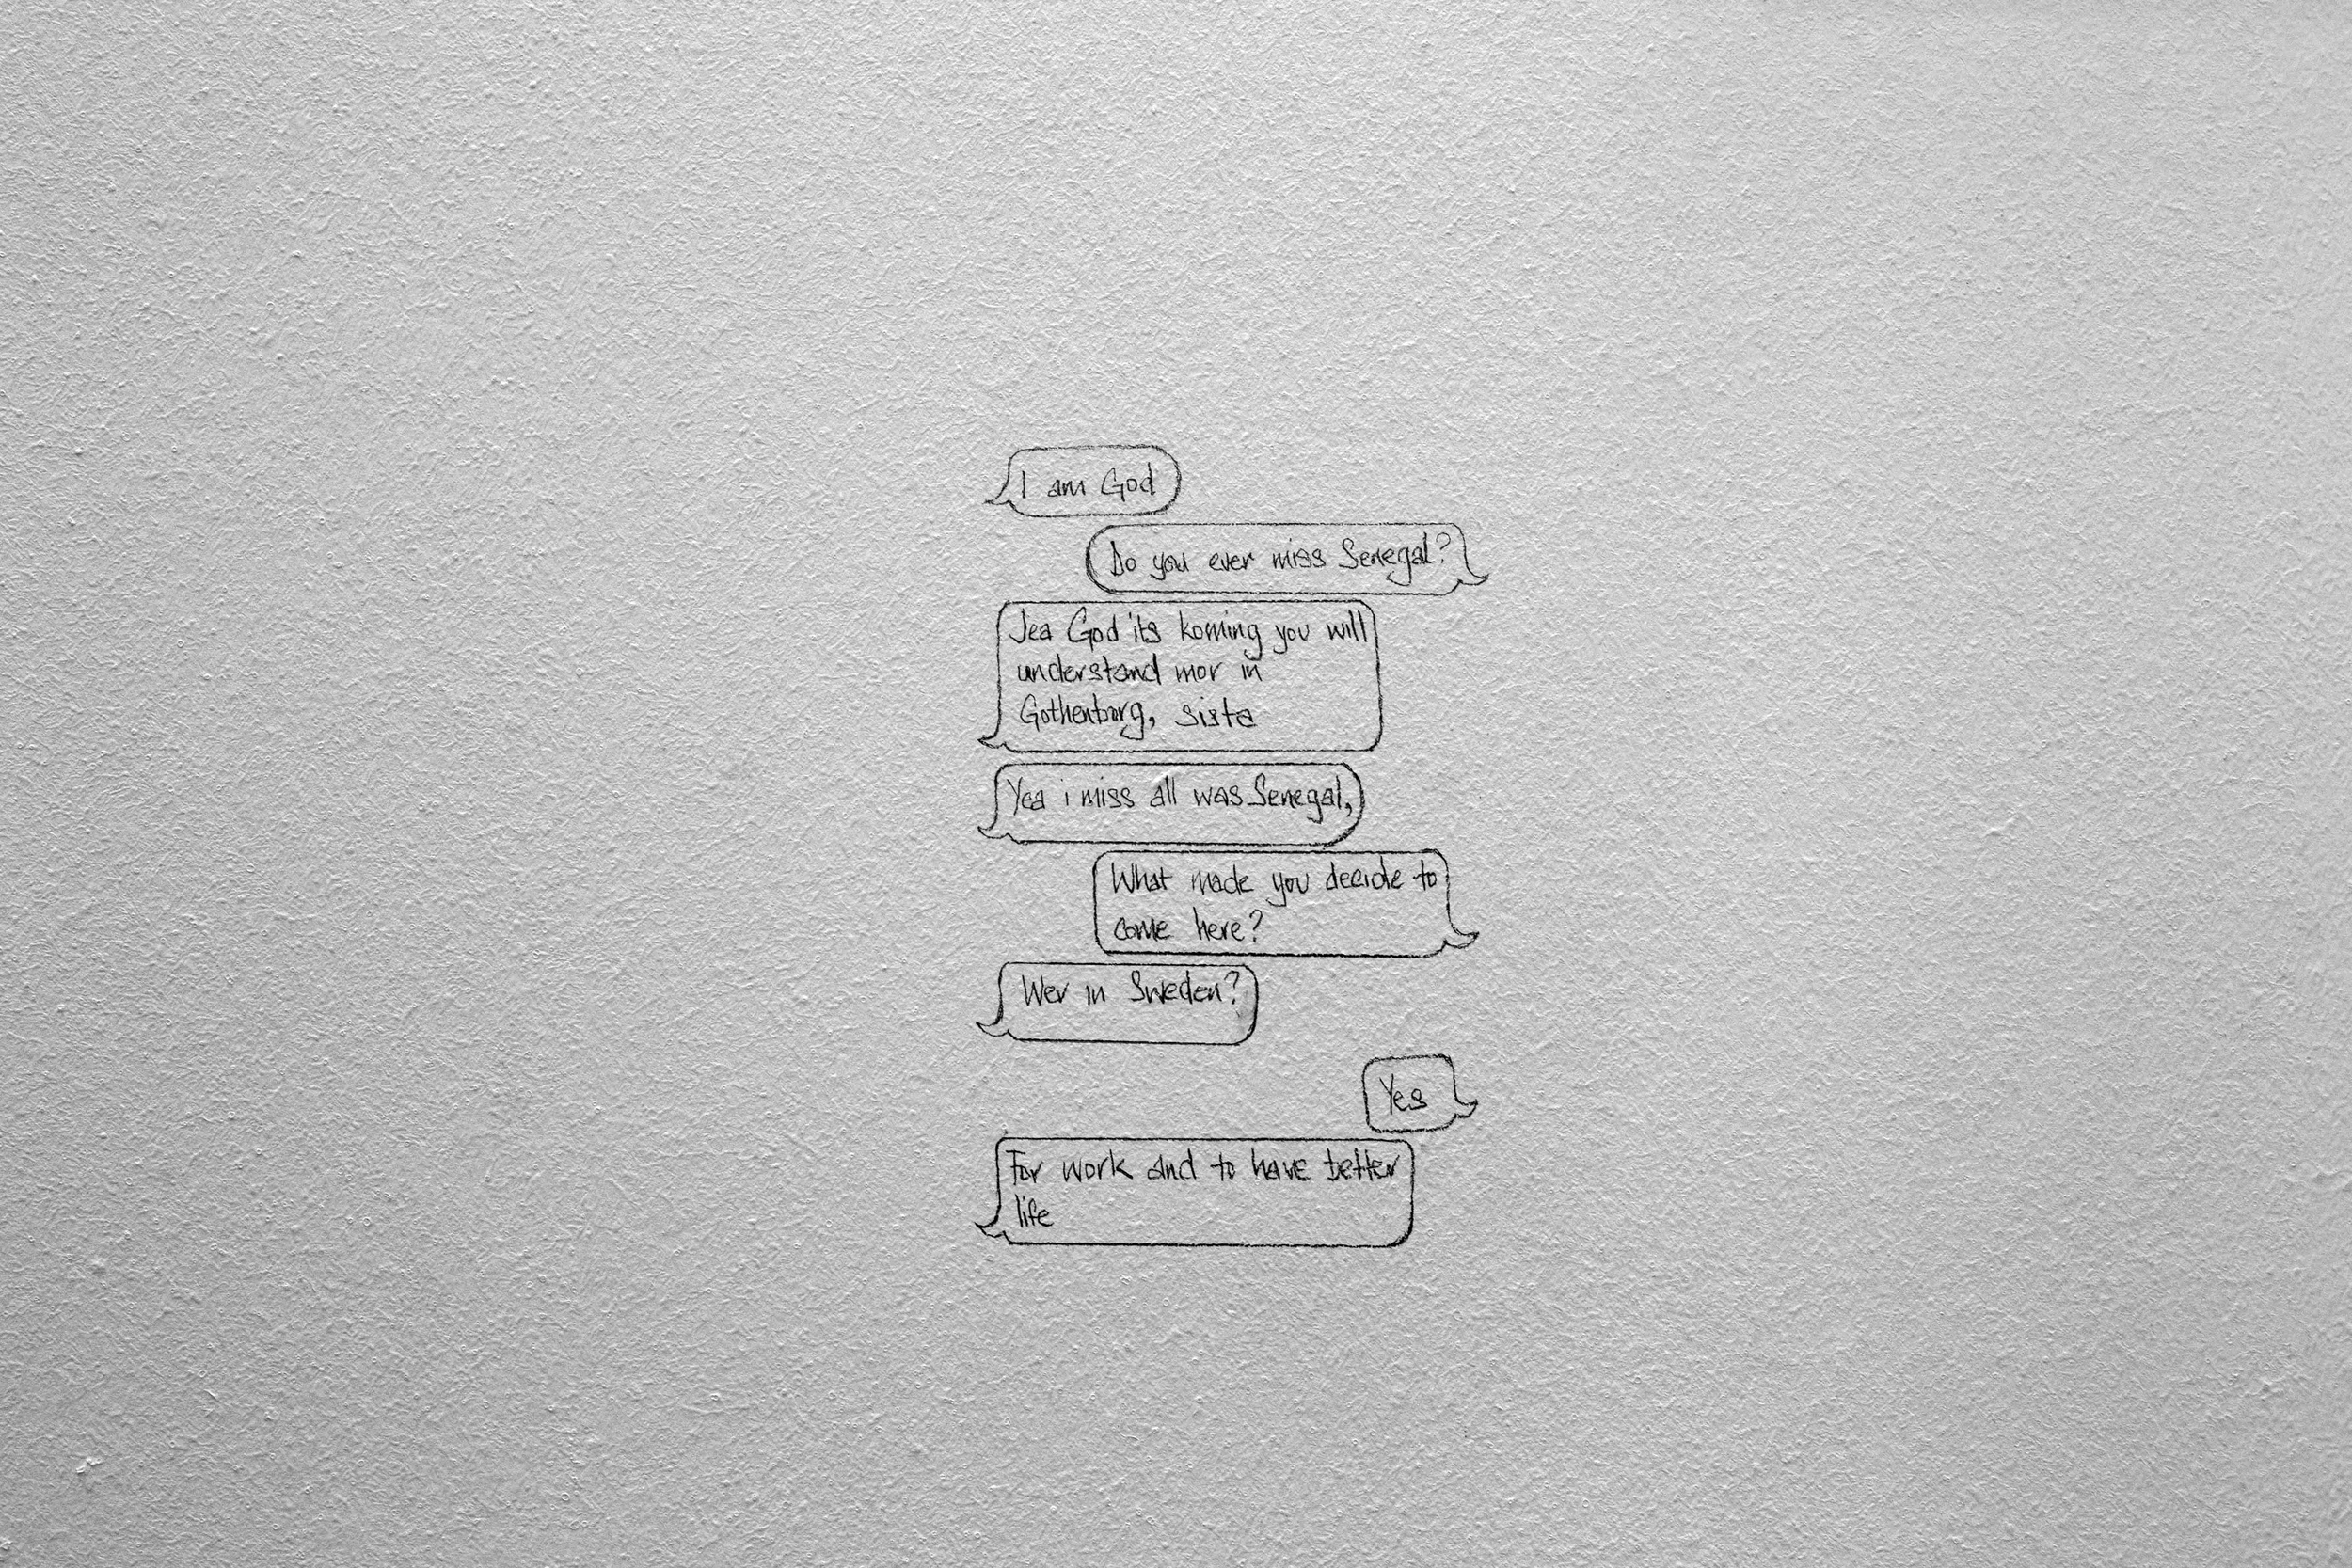 I am God
Do you ever miss Senegal?
Jea God its koming you will
understand mor in
Gothenborg, sista
Yea i miss all was Senegal,
What made you decide to
come here?
Wer in Sweden?
Yes
For work and to have better
life